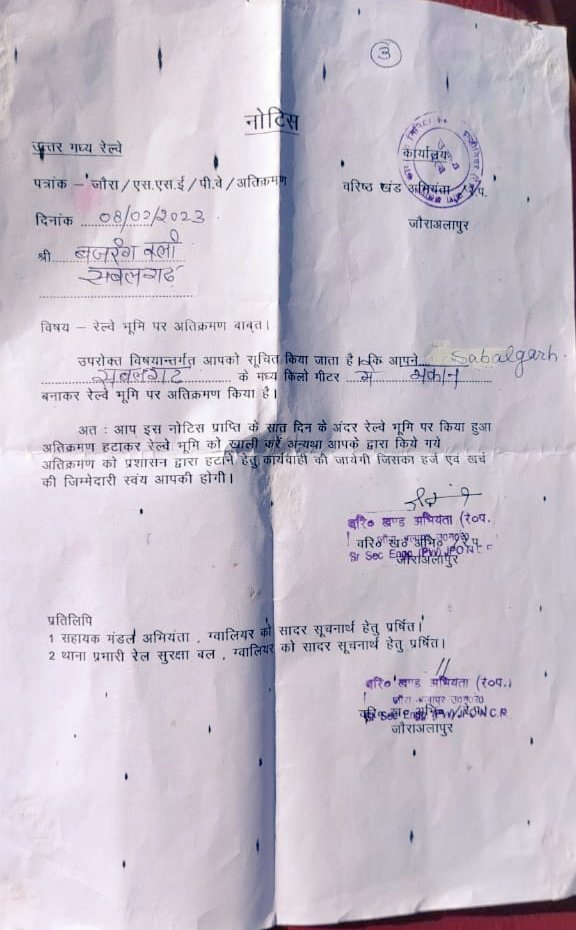 3
नोटिस
उत्तर मध्य रेल्वे
कार्यालय
पत्रांक – जौरा/एस.एस.ई/पी.वे/अतिक्रमण
वरिष्ठ खंड अभियंता /रे.प.
दिनांक 08/02/2023
जौराअलापुर
श्री बजरंग बली
सबलगढ़
विषय – रेल्वे भूमि पर अतिक्रमण बाबत।
उपरोक्त विषयान्तर्गत आपको सूचित किया जाता है। कि आपने Sabalgarh
सबलगढ के मध्य किलो मीटर में मकान
बनाकर रेल्वे भूमि पर अतिक्रमण किया है।
अत : आप इस नोटिस प्राप्ति के सात दिन के अंदर रेल्वे भूमि पर किया हुआ
अतिक्रमण हटाकर रेल्वे भूमि को खाली करें अन्यथा आपके द्वारा किये गये
अतिक्रमण को प्रशासन द्वारा हटाने हेतु कार्यवाही की जायेगी जिसका हर्ज एवं खर्च
की जिम्मेदारी स्वंय आपकी होगी।
वरि० खण्ड अभियंता (रे०प.
वरि० खं० अभि० /रे.प.
Sr Sec Engg (PW) JPO NCR
जौराअलापुर
प्रतिलिपि
1 सहायक मंडल अभियंता , ग्वालियर को सादर सूचनार्थ हेतु प्रर्षित।
2 थाना प्रभारी रेल सुरक्षा बल , ग्वालियर को सादर सूचनार्थ हेतु प्रर्षित।
वरि० खण्ड अभियंता (रे०प.)
Sr Sec Engg (PW) JPO NCR
जौराअलापुर